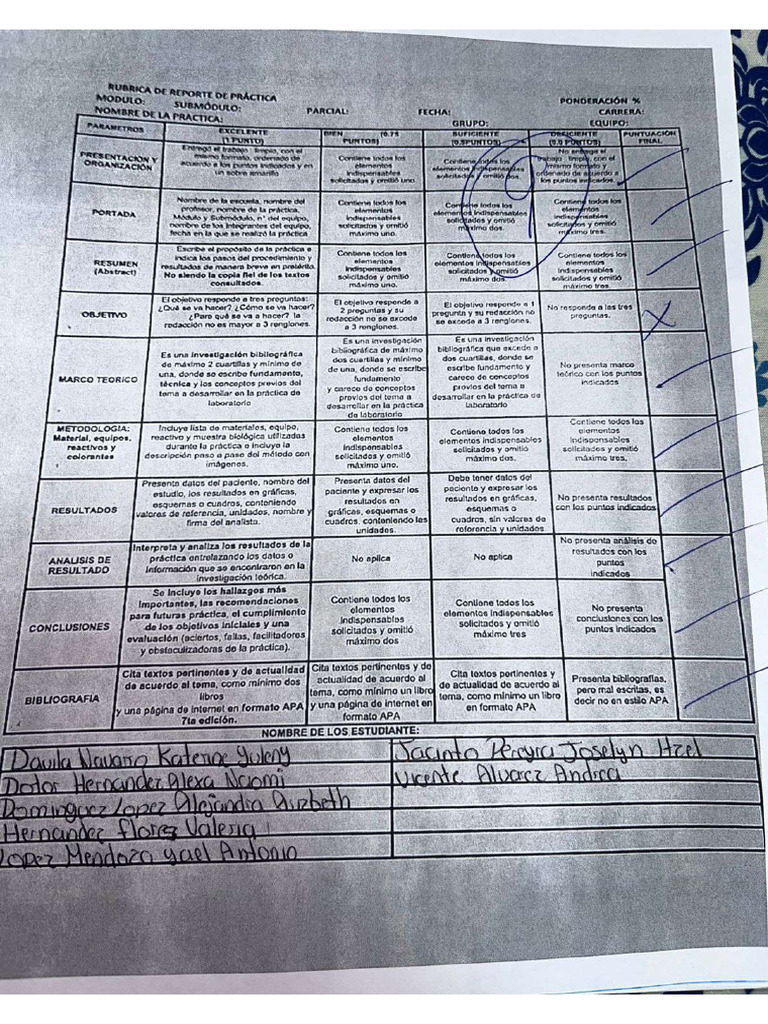 RUBRICA DE REPORTE DE PRÁCTICA
PONDERACIÓN %
MODULO: SUBMÓDULO: PARCIAL: FECHA: CARRERA:
NOMBRE DE LA PRACTICA: GRUPO: EQUIPO:
PARAMETROS
EXCELENTE
(1 PUNTO)
BIEN (0.75
PUNTOS)
SUFICIENTE
(0.5PUNTOS)
DEFICIENTE
(0.0 PUNTOS)
PUNTUACIÓN
FINAL
9
PRESENTACIÓN Y
ORGANIZACIÓN
Entregó el trabajo limpio, con el
mismo formato, ordenado de
acuerdo a los puntos indicados y en
un sobre amarillo
Contiene todos los
elementos
indispensables
solicitados y omitió uno.
Contiene todos los
elementos indispensables
solicitados y omitió dos.
No entrega el
trabajo limpio, con el
mismo formato y
ordenado de acuerdo a
los puntos indicados.
PORTADA
Nombre de la escuela, nombre del
profesor, nombre de la práctica,
Módulo y Submódulo, n° del equipo,
nombre de los integrantes del equipo,
fecha en la que se realizó la práctica
Contiene todos los
elementos
indispensables
solicitados y omitió
máximo uno.
Contiene todos los
elementos indispensables
solicitados y omitió
máximo dos.
Contiene todos los
elementos
indispensables
solicitados y omitió
máximo tres.
RESUMEN
(Abstract)
Escribe el propósito de la práctica e
indica los pasos del procedimiento y
resultados de manera breve en pretérito.
No siendo la copia fiel de los textos
consultados.
Contiene todos los
elementos
indispensables
solicitados y omitió
máximo uno.
Contiene todos los
elementos indispensables
solicitados y omitió
máximo dos.
Contiene todos los
elementos
indispensables
solicitados y omitió
máximo tres.
OBJETIVO
El objetivo responde a tres preguntas:
¿Qué se va hacer? ¿Cómo se va hacer?
¿Para qué se va a hacer? la
redacción no es mayor a 3 renglones.
El objetivo responde a
2 preguntas y su
redacción no se excede
a 3 renglones.
El objetivo responde a 1
pregunta y su redacción no
se excede a 3 renglones.
No responde a las tres
preguntas.
X
MARCO TEORICO
Es una investigación bibliográfica
de máximo 2 cuartillas y mínimo de
una, donde se escribe fundamento,
técnica y los conceptos previos del
tema a desarrollar en la práctica de
laboratorio
Es una investigación
bibliográfica de máximo
dos cuartillas y mínimo
de una, donde se escribe
fundamento
y carece de conceptos
previos del tema a
desarrollar en la práctica
de laboratorio
Es una investigación
bibliográfica que excede a
dos cuartillas, donde se
escribe fundamento y
carece de conceptos
previos del tema a
desarrollar en la práctica de
laboratorio
No presenta marco
teórico con los puntos
indicados
METODOLOGIA:
Material, equipos,
reactivos y
colorantes
Incluye lista de materiales, equipo,
reactivo y muestra biológica utilizadas
durante la práctica e incluye la
descripción paso a paso del método con
imágenes.
Contiene todos los
elementos
indispensables
solicitados y omitió
máximo uno.
Contiene todos los
elementos indispensables
solicitados y omitió
máximo dos.
Contiene todos los
elementos
indispensables
solicitados y omitió
máximo tres.
RESULTADOS
Presenta datos del paciente, nombre del
estudio, los resultados en gráficas,
esquemas o cuadros, conteniendo
valores de referencia, unidades, nombre y
firma del analista.
Presenta datos del
paciente y expresar los
resultados en
gráficas, esquemas o
cuadros, conteniendo las
unidades.
Debe tener datos del
paciente y expresar los
resultados en gráficas,
esquemas o
cuadros, sin valores de
referencia y unidades
No presenta resultados
con los puntos indicados
ANALISIS DE
RESULTADO
Interpreta y analiza los resultados de la
práctica entrelazando los datos o
información que se encontraron en la
investigación teórica.
No aplica
No aplica
No presenta análisis de
resultados con los
puntos
indicados
CONCLUSIONES
Se incluye los hallazgos más
importantes, las recomendaciones
para futuras práctica, el cumplimiento
de los objetivos iniciales y una
evaluación (aciertos, fallas, facilitadores
y obstaculizadoras de la práctica).
Contiene todos los
elementos
indispensables
solicitados y omitió
máximo dos
Contiene todos los
elementos indispensables
solicitados y omitió
máximo tres
No presenta
conclusiones con los
puntos indicados
BIBLIOGRAFIA
Cita textos pertinentes y de actualidad
de acuerdo al tema, como mínimo dos
libros
y una página de internet en formato APA
7ta edición.
Cita textos pertinentes y de
actualidad de acuerdo al
tema, como mínimo un libro
y una página de internet en
formato APA
Cita textos pertinentes y
de actualidad de acuerdo al
tema, como mínimo un libro
en formato APA
Presenta bibliografías,
pero mal escritas, es
decir no en estilo APA
NOMBRE DE LOS ESTUDIANTE:
Davila Navarro Katerine Yuleny
Jacinto Pereyra Joselyn Itzel
Dolor Hernandez Alexa Naomi
Vicente Alvarez Andrea
Dominguez Lopez Alejandra Aurbeth
Hernandez flores Valeria
Lopez Mendoza yael Antonio